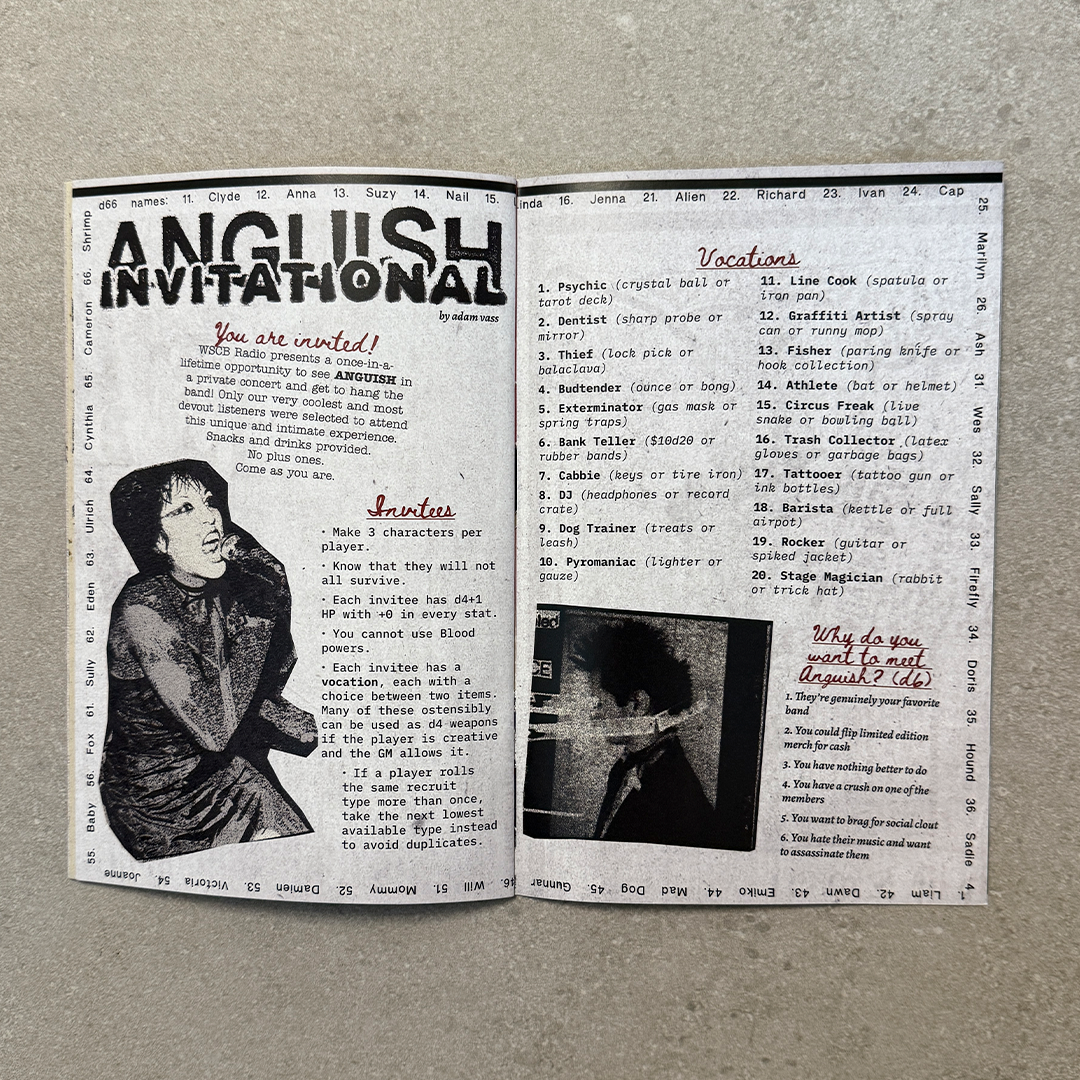 d66 names: 11. Clyde 12. Anna 13. Suzy 14. Nail 15.
ANGUISH
INVITATIONAL
by adam vass
You are invited!
WSCB Radio presents a once-in-a-
lifetime opportunity to see ANGUISH in
a private concert and get to hang the
band! Only our very coolest and most
devout listeners were selected to attend
this unique and intimate experience.
Snacks and drinks provided.
No plus ones.
Come as you are.
Invitees
· Make 3 characters per
player.
· Know that they will not
all survive.
· Each invitee has d4+1
HP with +0 in every stat.
· You cannot use Blood
powers.
· Each invitee has a
vocation, each with a
choice between two items.
Many of these ostensibly
can be used as d4 weapons
if the player is creative
and the GM allows it.
· If a player rolls
the same recruit
type more than once,
take the next lowest
available type instead
to avoid duplicates.
inda 16. Jenna 21. Alien 22. Richard 23. Ivan 24. Cap
Vocations
1. Psychic (crystal ball or
tarot deck)
2. Dentist (sharp probe or
mirror)
3. Thief (lock pick or
balaclava)
4. Budtender (ounce or bong)
5. Exterminator (gas mask or
spring traps)
6. Bank Teller ($10d20 or
rubber bands)
7. Cabbie (keys or tire iron)
8. DJ (headphones or record
crate)
9. Dog Trainer (treats or
leash)
10. Pyromaniac (lighter or
gauze)
11. Line Cook (spatula or
iron pan)
12. Graffiti Artist (spray
can or runny mop)
13. Fisher (paring knife or
hook collection)
14. Athlete (bat or helmet)
15. Circus Freak (live
snake or bowling ball)
16. Trash Collector (latex
gloves or garbage bags)
17. Tattooer (tattoo gun or
ink bottles)
18. Barista (kettle or full
airpot)
19. Rocker (guitar or
spiked jacket)
20. Stage Magician (rabbit
or trick hat)
Why do you
want to meet
Anguish? (d6)
1. They're genuinely your favorite
band
2. You could flip limited edition
merch for cash
3. You have nothing better to do
4. You have a crush on one of the
members
5. You want to brag for social clout
6. You hate their music and want
to assassinate them
25. Marilyn 26. Ash 31. Wes 32. Sally 33. Firefly 34. Doris 35. Hound 36. Sadie 4
1. Liam 42. Dawn 43. Emiko 44. Mad Dog 45. Gunnar
46. Will 51. Mommy 52. Damien 53. Victoria 54. Joanne
55. Baby 56. Fox 61. Sully 62. Eden 63. Ulrich 64. Cynthia 65. Cameron 66. Shrimp